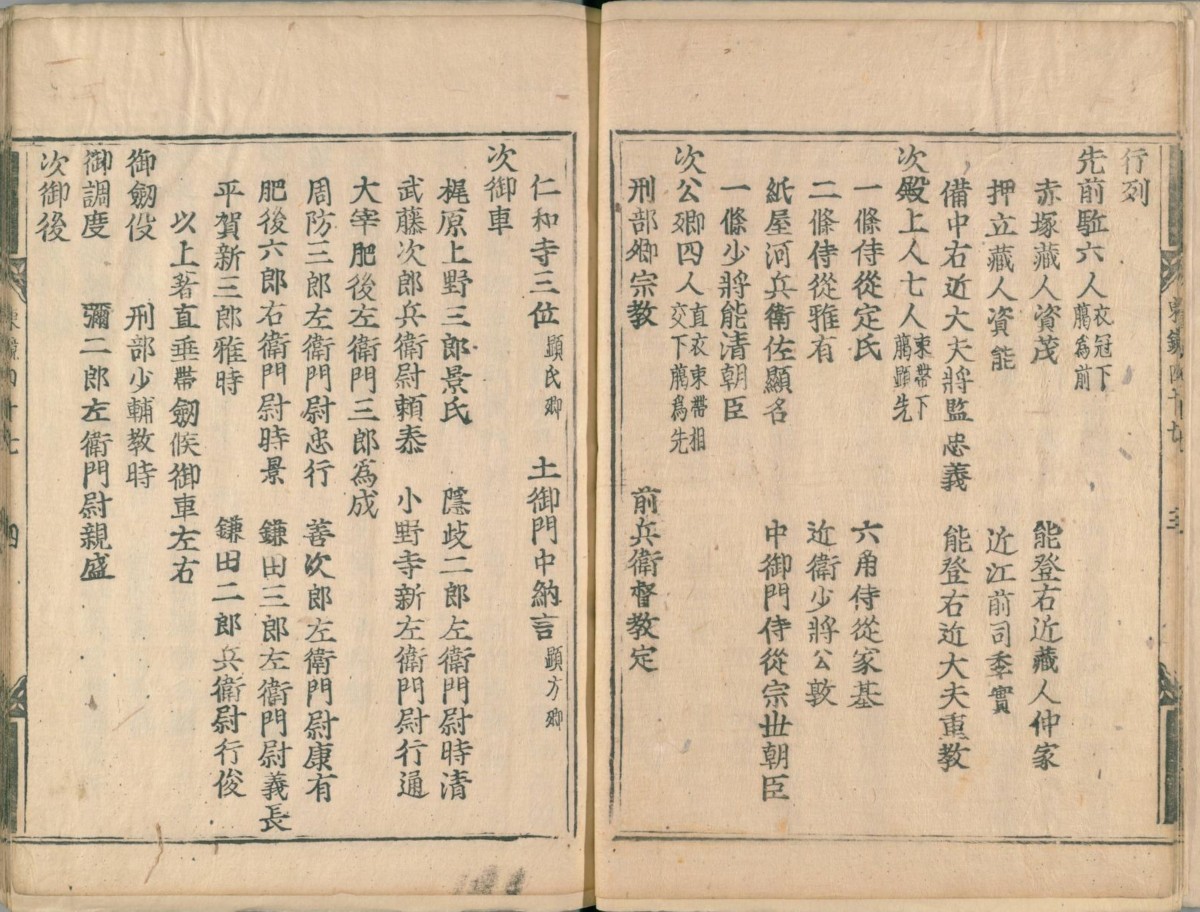 行列
先前駈六人衣冠下
﨟為前
赤塚藏人資茂 能登右近藏人仲家
押立藏人資能 近江前司季實
備中右近大夫將監忠義 能登右近大夫重教
次殿上人七人束帶下
﨟顯先
一條侍從定氏 六角侍從家基
二條侍從雅有 近衛少將公敦
紙屋河兵衛佐顯名 中御門侍從宗世朝臣
一條少將能清朝臣
次公卿四人直衣束帶相
交下﨟為先
刑部卿宗教 前兵衛督教定
仁和寺三位顯氏卿 土御門中納言顯方卿
次御車
梶原上野三郎景氏 隱歧二郎左衛門尉時清
武藤次郎兵衛尉賴泰 小野寺新左衛門尉行通
大宰肥後左衛門三郎為成
周防三郎左衛門尉忠行 善次郎左衛門尉康有
肥後六郎右衛門尉時景 鎌田三郎左衛門尉義長
平賀新三郎雅時 鎌田二郎兵衛尉行俊
以上著直垂帶劔候御車左右
御劔役 刑部少輔教時
御調度 彌二郎左衛門尉親盛
次御後